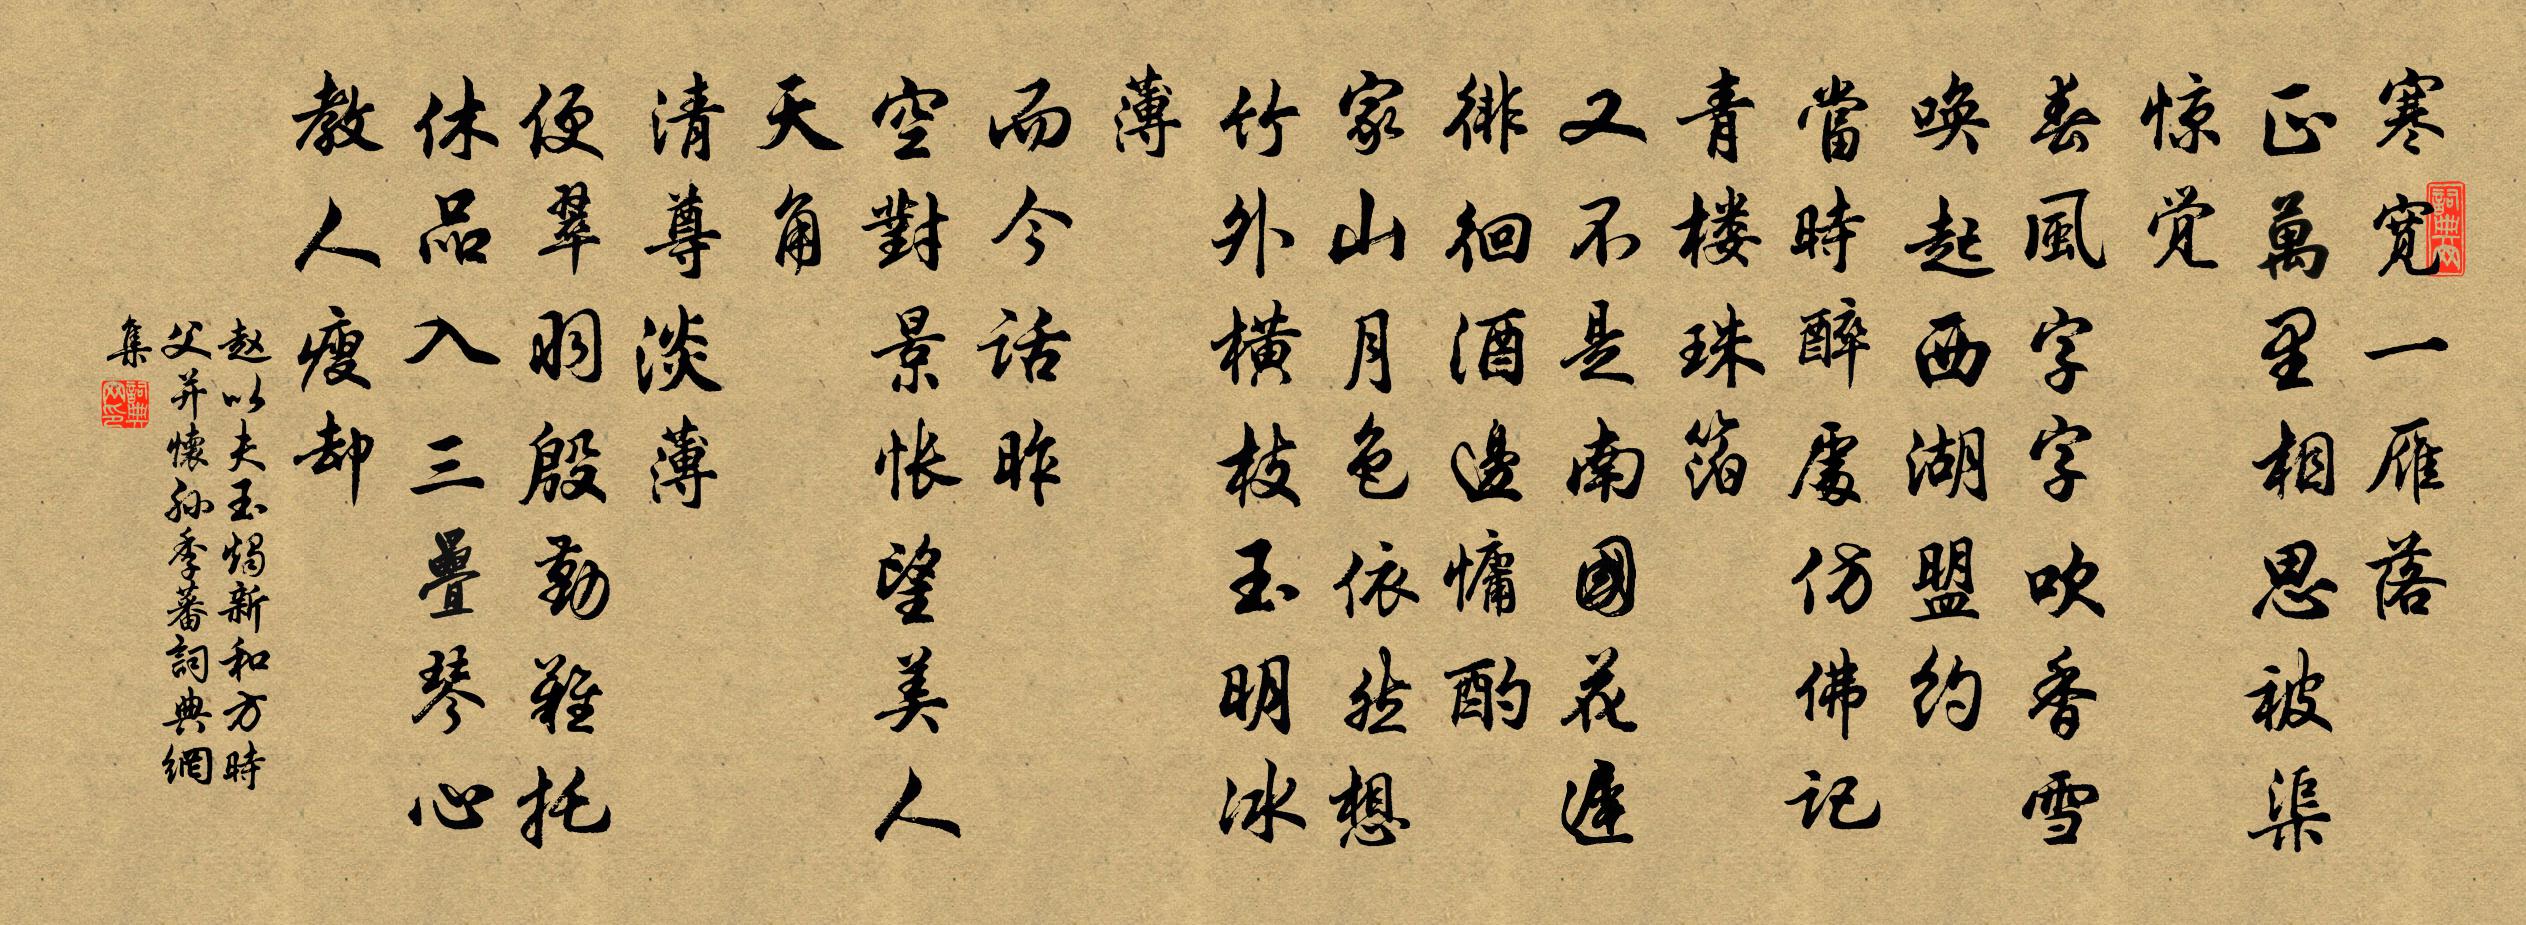 寒寬一雁落
正萬里相思被渠
惊觉
春風字字吹香雪
唤起西湖盟约
當時醉處仿佛记
青楼珠箔
又不是南國花遲
徘徊酒邊慵酌
家山月色依然想
竹外橫枝玉明冰
薄
而今话昨
空對景怅望美人
天角
清尊淡薄
便翠羽殷勤難托
休品入三疊琴心
教人瘦却
赵以夫玉燭新和方時
父并懷孙季蕃詞典網
集
詞典网
詞典网印